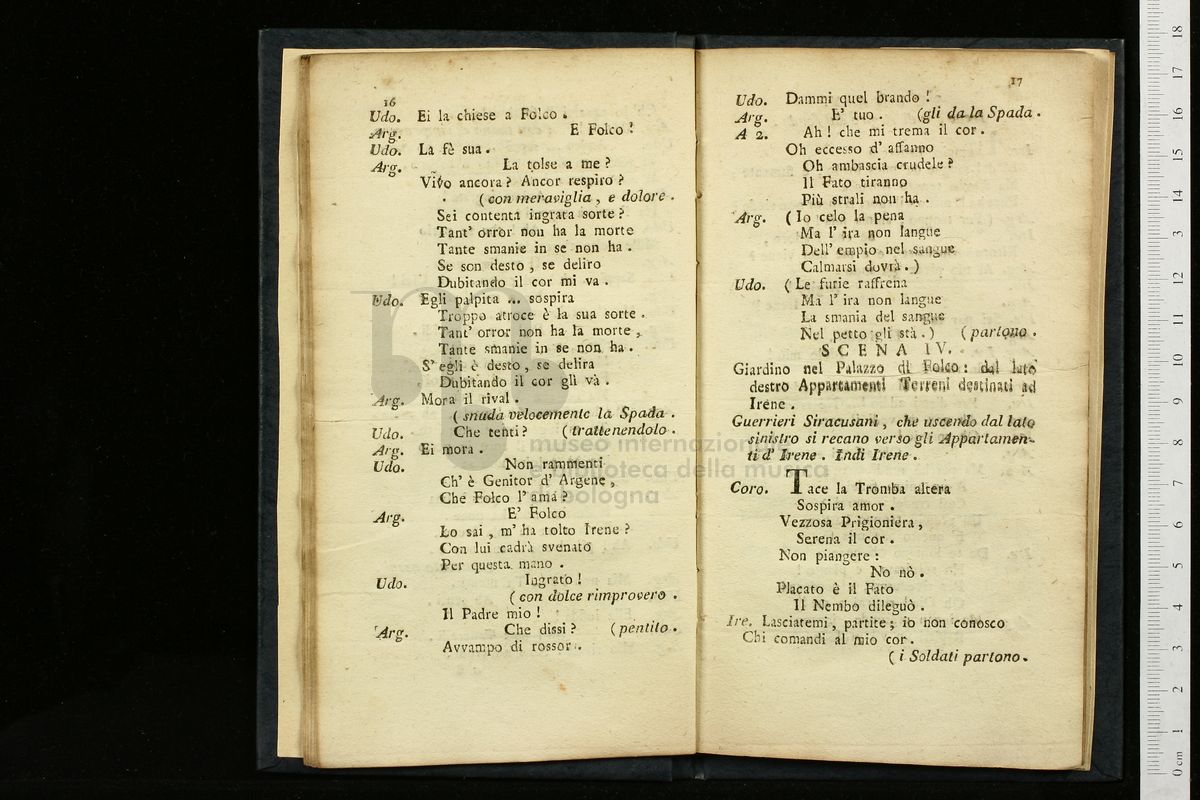 16
Udo. Ei la chiese a Folco.
Arg. E Folco!
Udo. La fè sua.
Arg. La tolse a me?
Vivo ancora? Ancor respiro?
(con meraviglia, e dolore.
Sei contenta ingrata sorte?
Tant' orror non ha la morte
Tante smanie in se non ha.
Se son desto, se deliro
Dubitando il cor mi va.
Udo. Egli palpita ... sospira
Troppo atroce è la sua sorte.
Tant' orror non ha la morte,
Tante smanie in se non ha.
S' egli è desto, se delira
Dubitando il cor gli và.
Arg. Mora il rival.
(snuda velocemente la Spada.
Udo. Che tenti? (trattenendolo.
Arg. Ei mora.
Udo. Non rammenti
Ch' è Genitor d' Argene,
Che Folco l' ama?
Arg. E' Folco
Lo sai, m' ha tolto Irene?
Con lui cadrà svenato
Per questa mano.
Udo. Ingrato!
(con dolce rimprovero.
Il Padre mio!
Arg. Che dissi? (pentito.
Avvampo di rossor.
17
Udo. Dammi quel brando!
Arg. E' tuo. (gli da la Spada.
A 2. Ah! che mi trema il cor.
Oh eccesso d' affanno
Oh ambascia crudele?
Il Fato tiranno
Più strali non ha.
Arg. (Io celo la pena
Ma l' ira non langue
Dell' empio nel sangue
Calmarsi dovrà.)
Udo. (Le furie raffrena
Ma l' ira non langue
La smania del sangue
Nel petto gli stà.) (partono.
SCENA IV.
Giardino nel Palazzo di Folco: dal lato
destro Appartamenti Terreni destinati ad
Irene.
Guerrieri Siracusani, che uscendo dal lato
sinistro si recano verso gli Appartamen-
ti d' Irene. Indi Irene.
Coro. Tace la Tromba altera
Sospira amor.
Vezzosa Prigioniera,
Serena il cor.
Non piangere:
No nò.
Placato è il Fato
Il Nembo dileguò.
Ire. Lasciatemi, partite; io non conosco
Chi comandi al mio cor.
(i Soldati partono.
museo internazionale
e biblioteca della musica
bologna
0 cm 1 2 3 4 5 6 7 8 9 10 11 12 13 14 15 16 17 18